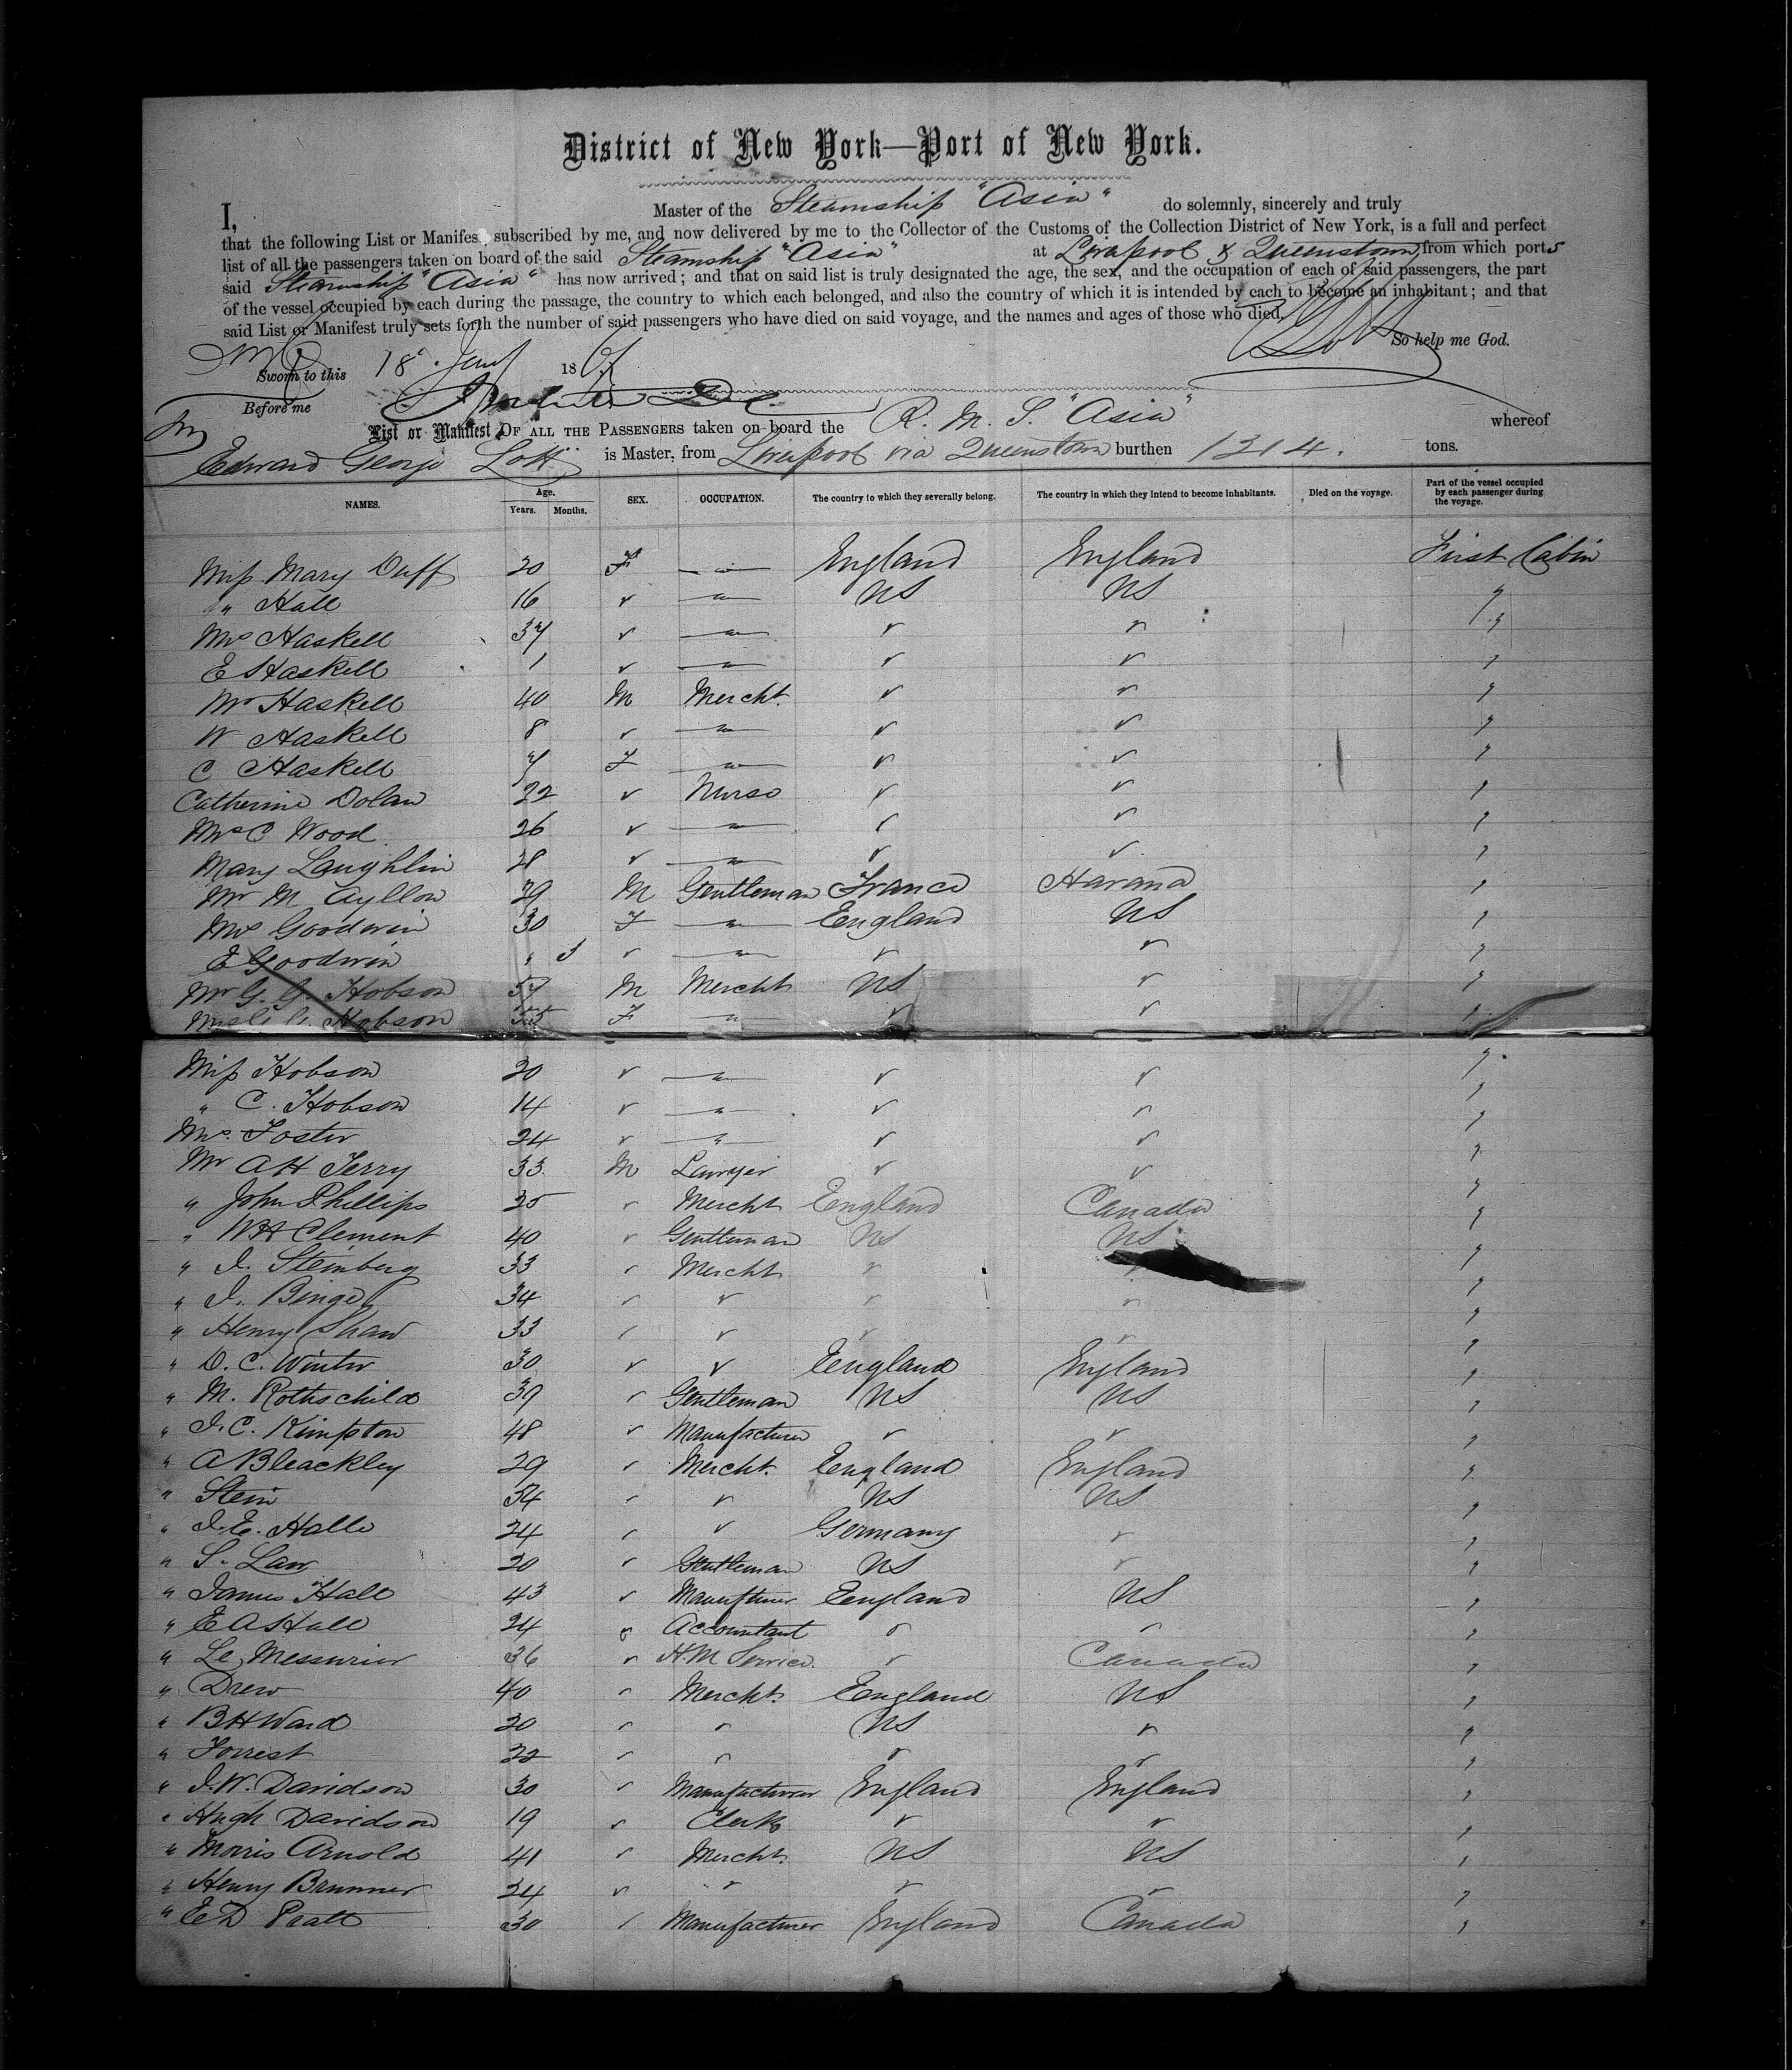 District of New York—Port of New York.
I, Master of the Steamship "Asia" do solemnly, sincerely and truly
that the following List or Manifes subscribed by me, and now delivered by me to the Collector of the Customs of the Collection District of New York, is a full and perfect
list of all the passengers taken on board of the said Steamship "Asia" at Liverpool & Queenstown from which ports
said Steamship "Asia" has now arrived; and that on said list is truly designated the age, the sex, and the occupation of each of said passengers, the part
of the vessel occupied by each during the passage, the country to which each belonged, and also the country of which it is intended by each to become an inhabitant; and that
said List or Manifest truly sets forth the number of said passengers who have died on said voyage, and the names and ages of those who died.
So help me God.
Sworn to this 18 186
Before me
List or Manifest OF ALL THE PASSENGERS taken on board the R. M. S. "Asia" whereof
Edward George Lott is Master, from Liverpool via Queenstown burthen 1314. tons.
NAMES. Age. Years. Months. SEX. OCCUPATION. The country to which they severally belong. The country in which they intend to become inhabitants. Died on the voyage. Part of the vessel occupied by each passenger during the voyage.
Miss Mary Duff 20 F — " — England England First Cabin
" Hall 16 " — " — US US "
Mrs Haskell 37 " — " — " " "
E Haskell 1 " — " — " " "
Mr Haskell 40 M Mercht. " " "
W Haskell 8 " — " — " " "
C Haskell 7 F — " — " " "
Catherine Dolan 22 " Nurse " " "
Mrs C Wood 26 " — " — " " "
Mary Laughlin 28 " — " — " " "
Mr M Ayllon 29 M Gentleman France Havana "
Mrs Goodwin 30 F — " — England US "
E Goodwin " 3 " — " — " " "
Mr G. G. Hobson 57 M Mercht US " "
Mrs G. G. Hobson 55 F " " " "
Miss Hobson 20 " — " — " " "
" C. Hobson 14 " — " — " " "
Mrs. Foster 24 " — " — " " "
Mr A H Terry 33 M Lawyer " " "
" John Phillips 25 " Mercht England Canada "
" W H Clement 40 " Gentleman US US "
" I. Steinberg 33 " Mercht " " "
" I. Binge 34 " " " " "
" Henry Shaw 33 " " " " "
" D. C. Winter 30 " " England England "
" M. Rothschild 39 " Gentleman US US "
" I. C. Kimpton 48 " Manufacturer " " "
" A Bleackley 29 " Mercht. England England "
" Stein 34 " " US US "
" I. E. Halle 24 " " Germany " "
" S. Law 20 " Gentleman US " "
" James Hall 43 " England US "
" E A Hall 24 " Accountant " " "
" Le Messurier 36 " H M Service. " Canada "
" Drew 40 " Mercht. England US "
" B H Ward 20 " " US " "
" Forrest 22 " " " " "
" J. W. Davidson 30 " Manufacturer England England "
" Hugh Davidson 19 " Clerk " " "
" Morris Arnold 41 " Mercht. US US "
" Henry Brunner 24 " " " " "
" E D Pratt 30 " Manufacturer England Canada "